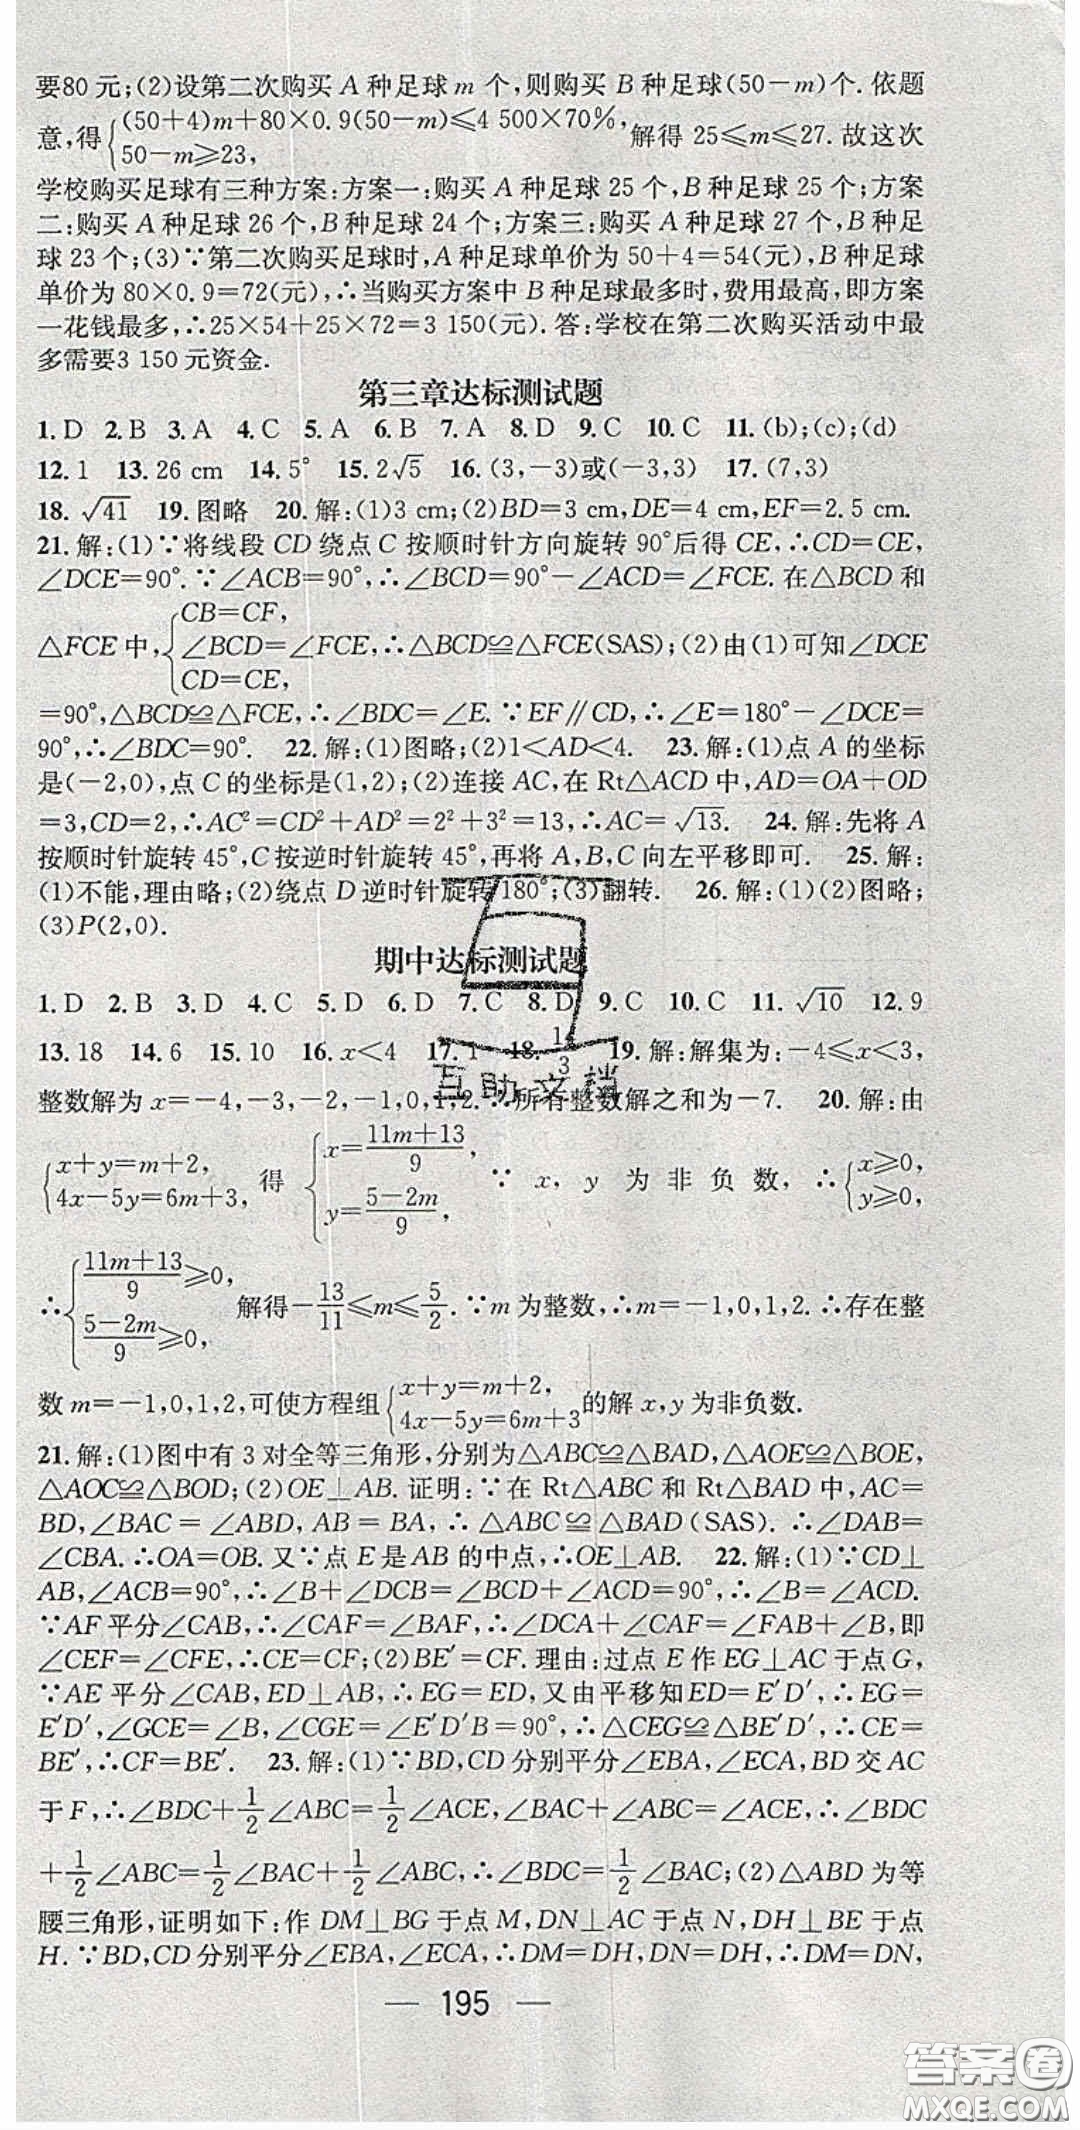 要80元;(2)设第二次购买A种足球m个,则购买B种足球(50-m)个.依题
意,得{(50+4)m+80×0.9(50-m)≤4 500×70%, 50-m≥23, 解得25≤m≤27.故这次
学校购买足球有三种方案:方案一:购买A种足球25个,B种足球25个;方案
二:购买A种足球26个,B种足球24个;方案三:购买A种足球27个,B种足
球23个;(3)∵第二次购买足球时,A种足球单价为50+4=54(元),B种足球
单价为80×0.9=72(元),∴当购买方案中B种足球最多时,费用最高,即方案
一花钱最多,∴25×54+25×72=3 150(元).答:学校在第二次购买活动中最
多需要3 150元资金.
第三章达标测试题
1.D 2.B 3.A 4.C 5.A 6.B 7.A 8.D 9.C 10.C 11.(b);(c);(d)
12.1 13.26 cm 14.5° 15.2√5 16.(3,-3)或(-3,3) 17.(7,3)
18.√41 19.图略 20.解:(1)3 cm;(2)BD=3 cm,DE=4 cm,EF=2.5 cm.
21.解:(1)∵将线段CD绕点C按顺时针方向旋转90°后得CE,∴CD=CE,
∠DCE=90°.∵∠ACB=90°,∴∠BCD=90°-∠ACD=∠FCE.在△BCD和
△FCE中,{CB=CF, ∠BCD=∠FCE, CD=CE, ∴△BCD≌△FCE(SAS);(2)由(1)可知∠DCE
=90°,△BCD≌△FCE,∴∠BDC=∠E.∵EF∥CD,∴∠E=180°-∠DCE=
90°,∴∠BDC=90°. 22.解:(1)图略;(2)1<AD<4. 23.解:(1)点A的坐标
是(-2,0),点C的坐标是(1,2);(2)连接AC,在Rt△ACD中,AD=OA+OD
=3,CD=2,∴AC²=CD²+AD²=2²+3²=13,∴AC=√13. 24.解:先将A
按顺时针旋转45°,C按逆时针旋转45°,再将A,B,C向左平移即可. 25.解:
(1)不能,理由略;(2)绕点D逆时针旋转180°;(3)翻转. 26.解:(1)(2)图略;
(3)P(2,0).
期中达标测试题
1.D 2.B 3.D 4.C 5.D 6.D 7.C 8.D 9.C 10.C 11.√10 12.9
13.18 14.6 15.10 16.x<4 17.1 18.14/3 19.解:解集为:-4≤x<3,
整数解为x=-4,-3,-2,-1,0,1,2.∴所有整数解之和为-7. 20.解:由
{x+y=m+2, 4x-5y=6m+3, 得 {x=(11m+13)/9, y=(5-2m)/9, ∵x,y为非负数,∴{x≥0, y≥0,
∴{(11m+13)/9≥0, (5-2m)/9≥0, 解得-13/11≤m≤5/2.∵m为整数,∴m=-1,0,1,2.∴存在整
数m=-1,0,1,2,可使方程组{x+y=m+2, 4x-5y=6m+3 的解x,y为非负数.
21.解:(1)图中有3对全等三角形,分别为△ABC≌△BAD,△AOE≌△BOE,
△AOC≌△BOD;(2)OE⊥AB.证明:∵在Rt△ABC和Rt△BAD中,AC=
BD,∠BAC=∠ABD,AB=BA,∴△ABC≌△BAD(SAS).∴∠DAB=
∠CBA.∴OA=OB.又∵点E是AB的中点,∴OE⊥AB. 22.解:(1)∵CD⊥
AB,∠ACB=90°,∴∠B+∠DCB=∠BCD+∠ACD=90°,∴∠B=∠ACD.
∵AF平分∠CAB,∴∠CAF=∠BAF,∴∠DCA+∠CAF=∠FAB+∠B,即
∠CEF=∠CFE,∴CE=CF;(2)BE′=CF.理由:过点E作EG⊥AC于点G,
∵AE平分∠CAB,ED⊥AB,∴EG=ED,又由平移知ED=E′D′,∴EG=
E′D′,∠GCE=∠B,∠CGE=∠E′D′B=90°,∴△CEG≌△BE′D′,∴CE=
BE′,∴CF=BE′. 23.解:(1)∵BD,CD分别平分∠EBA,∠ECA,BD交AC
于F,∴∠BDC+1/2∠ABC=1/2∠ACE,∠BAC+∠ABC=∠ACE,∴∠BDC
+1/2∠ABC=1/2∠BAC+1/2∠ABC,∴∠BDC=1/2∠BAC;(2)△ABD为等
腰三角形,证明如下:作DM⊥BG于点M,DN⊥AC于点N,DH⊥BE于点
H.∵BD,CD分别平分∠EBA,∠ECA,∴DM=DH,DN=DH,∴DM=DN,
— 195 —
互助文档
答案圈
MXQE.COM